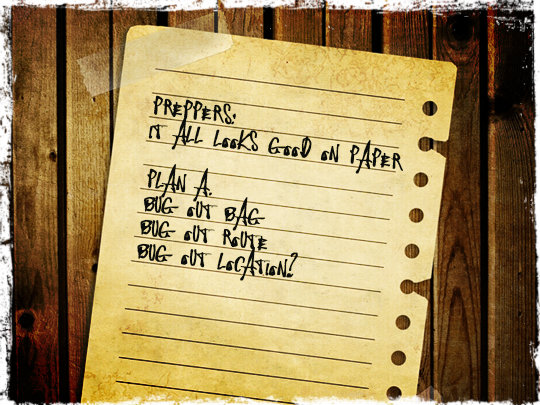 PREPPERS:
IT ALL LOOKS GOOD ON PAPER
PLAN A.
BUG OUT BAG
BUG OUT ROUTE
BUG OUT LOCATION?